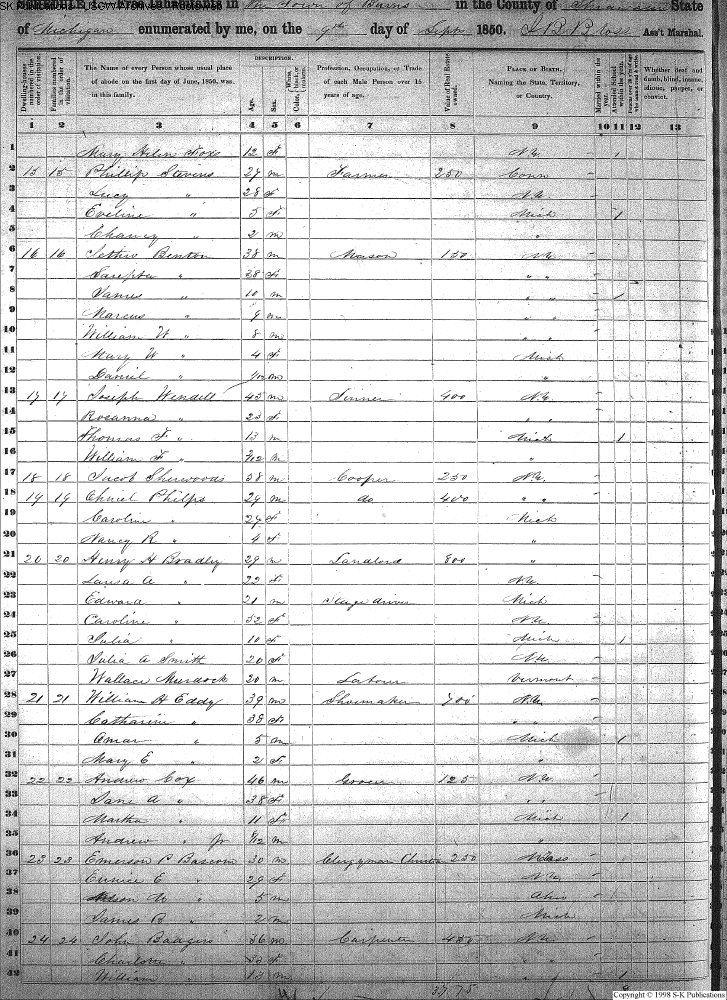 in the Town of Burns in the County of State
of Michigan enumerated by me, on the 9th day of Sept 1850. Ass't Marshal.
DESCRIPTION.
Dwelling-houses numbered in the order of visitation.
Families numbered in the order of visitation.
The Name of every Person whose usual place of abode on the first day of June, 1850, was in this family.
Age.
Sex.
Color, White, black, or mulatto.
Profession, Occupation, or Trade of each Male Person over 15 years of age.
Value of Real Estate owned.
PLACE OF BIRTH. Naming the State, Territory, or Country.
Married within the year.
Attended School within the year.
Whether deaf and dumb, blind, insane, idiotic, pauper, or convict.
1 2 3 4 5 6 7 8 9 10 11 12 13
1 Mary Helen Fox 12 F N.Y. 1
2 15 15 Phillip Stevens 27 m Farmer 250 Conn
3 Lucy " 28 F N.Y.
4 Eveline " 5 F Mich 1
5 Chancy " 2 m "
6 16 16 Benton 38 m Mason 150 N.Y.
7 " 38 F " "
8 James " 10 m " " 1
9 Marcus " 9 m " "
10 William W " 8 m " "
11 Mary W " 4 F Mich
12 Daniel " m "
13 17 17 Joseph Wendell 45 m 400 N.Y.
14 Rosanna " 23 F "
15 Thomas F " 13 m Mich 1
16 William F " m "
17 18 18 Jacob Sherwood 38 m Cooper 250 N.Y.
18 19 19 Philps 29 m do 400 " "
19 Caroline " 27 F Mich
20 Nancy R " 4 F "
21 20 20 Henry H Bradley 29 m Landlord 800 "
22 Laura A " 22 F N.Y.
23 Edward " 21 m Stage driver Mich
24 Caroline " 52 F N.Y.
25 Julia " 10 F Mich 1
26 Julia A Smith 20 F N.Y.
27 Wallace Murdock 20 m Labour Vermont
28 21 21 William H Eddy 39 m Shoemaker 700 N.Y.
29 Catharine " 38 F " "
30 Amar " 5 m Mich 1
31 Mary E " 2 F "
32 22 22 Andrew Cox 46 m Grocer 125 N.Y.
33 Jane A " 38 F " "
34 Martha " 11 F Mich 1
35 Andrew " Jr m "
36 23 23 Emerson P Bascom 30 m Clergyman 250 Mass
37 Eunice E " 29 F N.Y.
38 5 m Ohio
39 James B " 2 m Mich
40 24 24 John 36 m Carpenter 450 N.Y.
41 Charlotte " F " "
42 William " 13 m " 1
3775
Copyright © 1998 S-K Publications